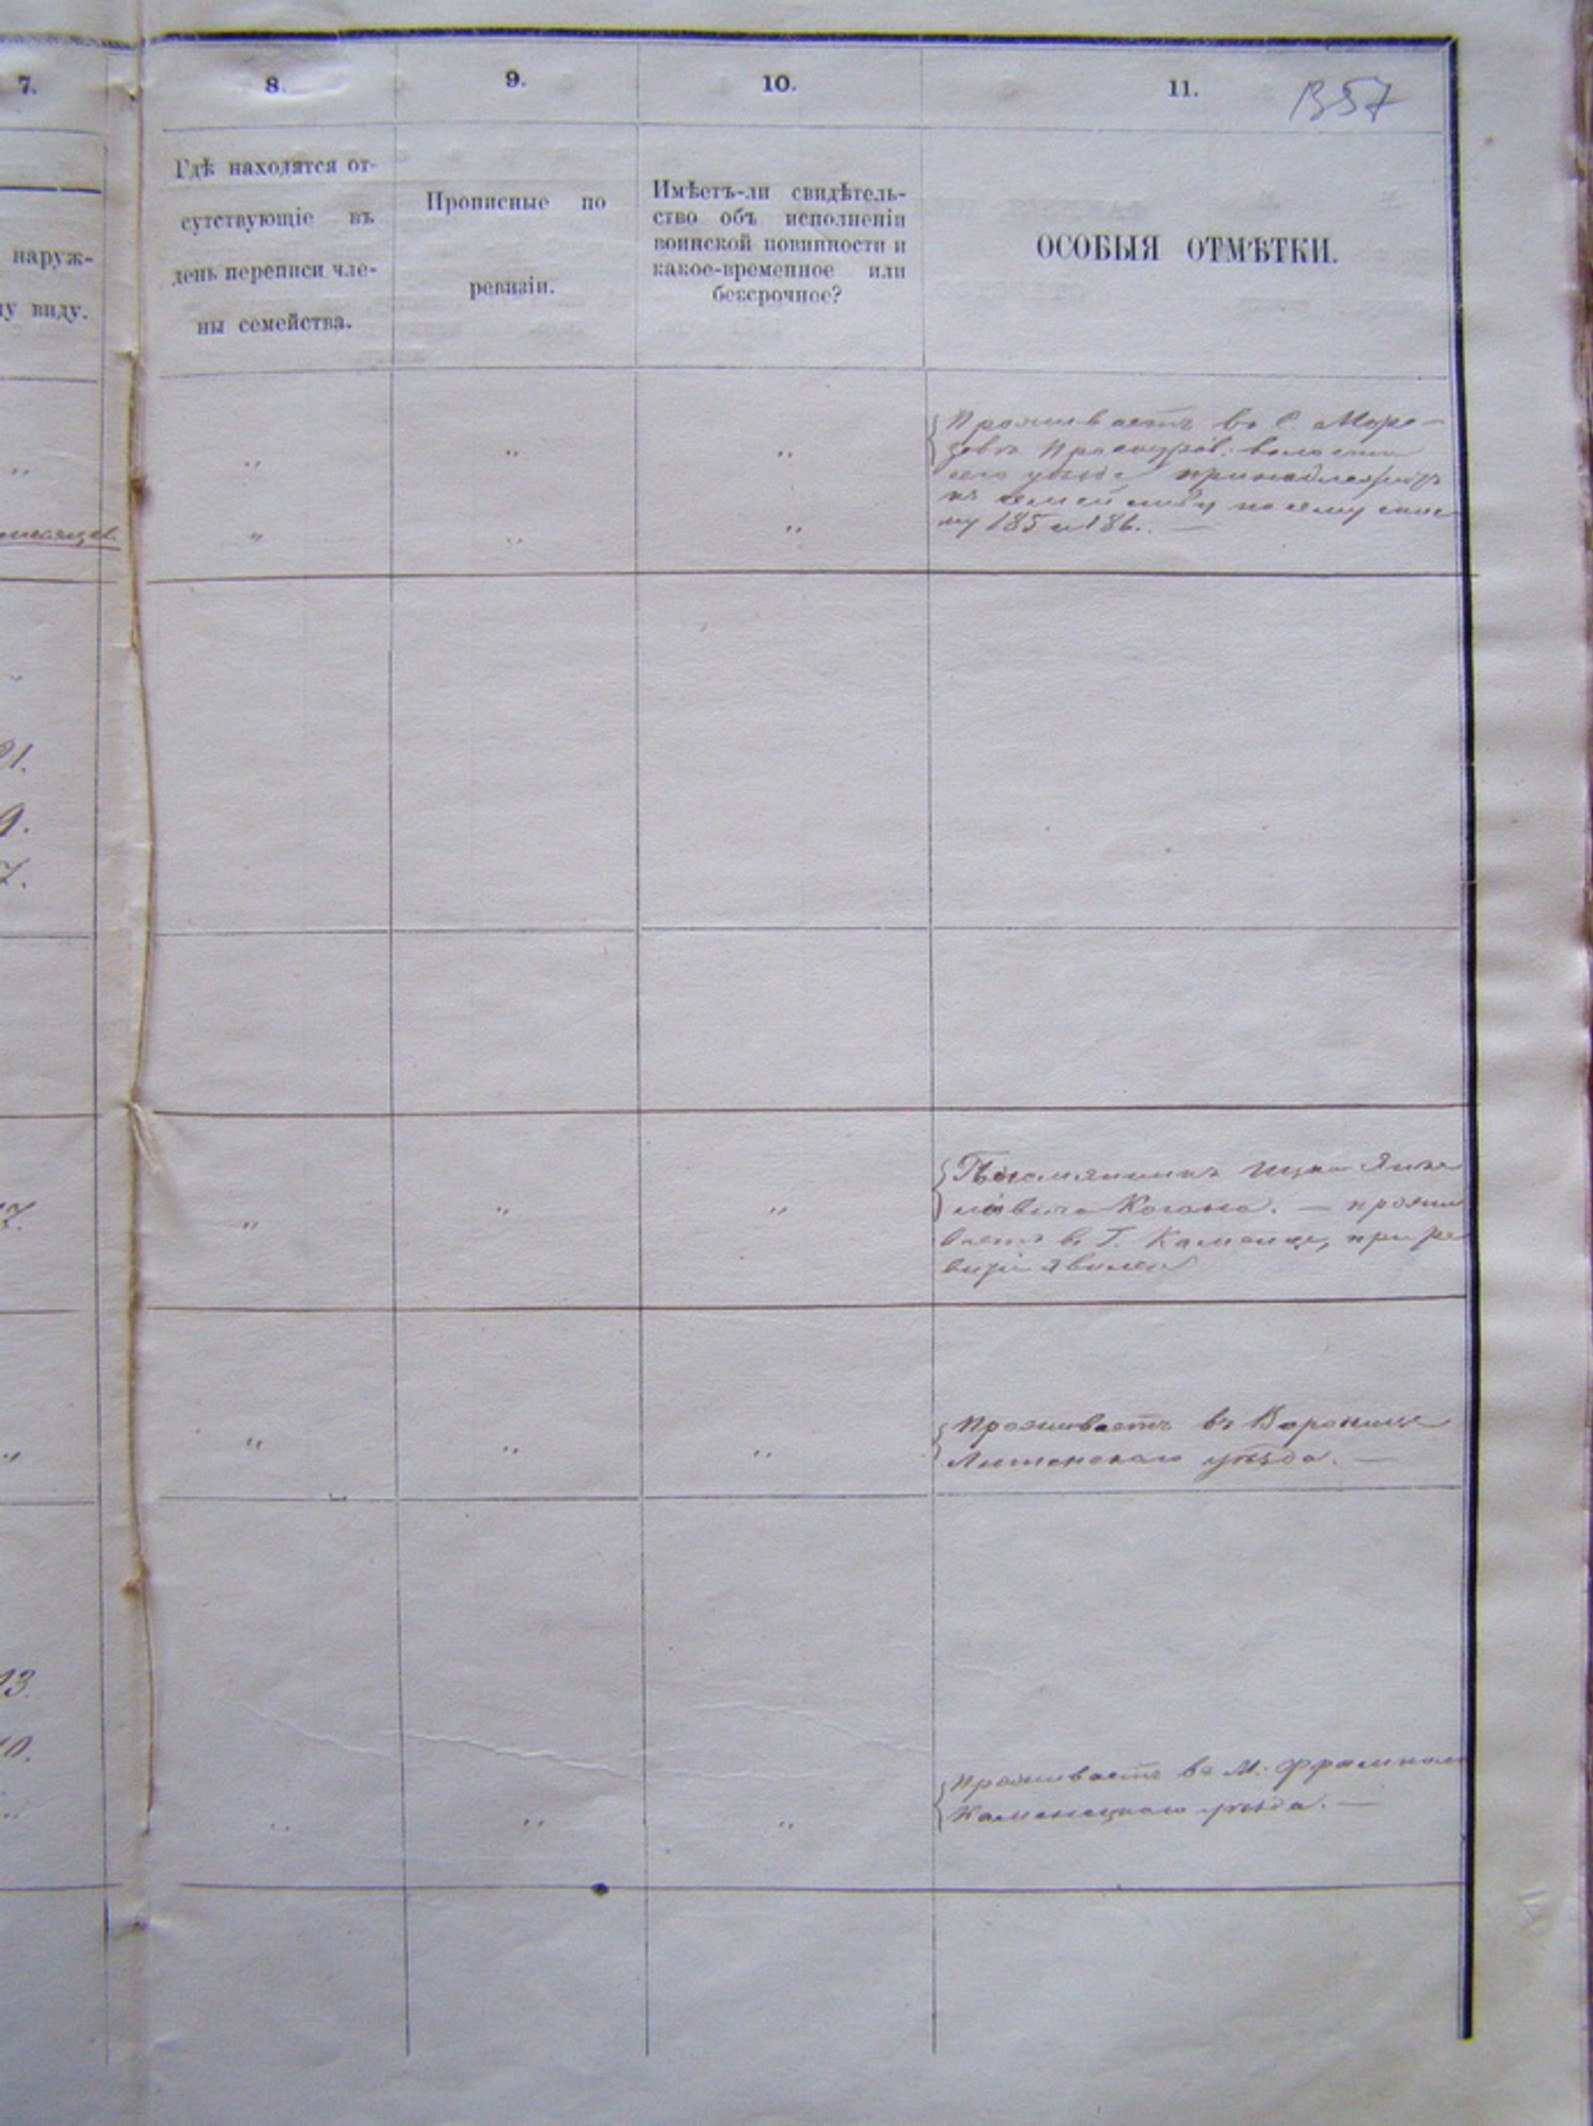 7.
8.
9.
10.
11.
1357
наруж-
му виду.
Гдѣ находятся от-
сутствующіе въ
день переписи чле-
ны семейства.
Прописные по
ревизіи.
Имѣетъ-ли свидѣтель-
ство объ исполненіи
воинской повинности и
какое-временное или
безсрочное?
ОСОБЫЯ ОТМѢТКИ.
Проживаетъ въ С. Моро-
зовѣ Проскуров. волости
сего уѣзда принадлежитъ
къ семейству по сему спис
ку 185 и 186. —
21.
9.
7.
17.
Племянникъ Ицка Янке
левича Когана. — прожи
ваетъ въ Г. Каменце, при ре
визіи явился
Проживаетъ въ Воронице
Литинскаго уѣзда. —
13.
10.
Проживаетъ въ М. Фрампол
Каменецкаго уѣзда. —